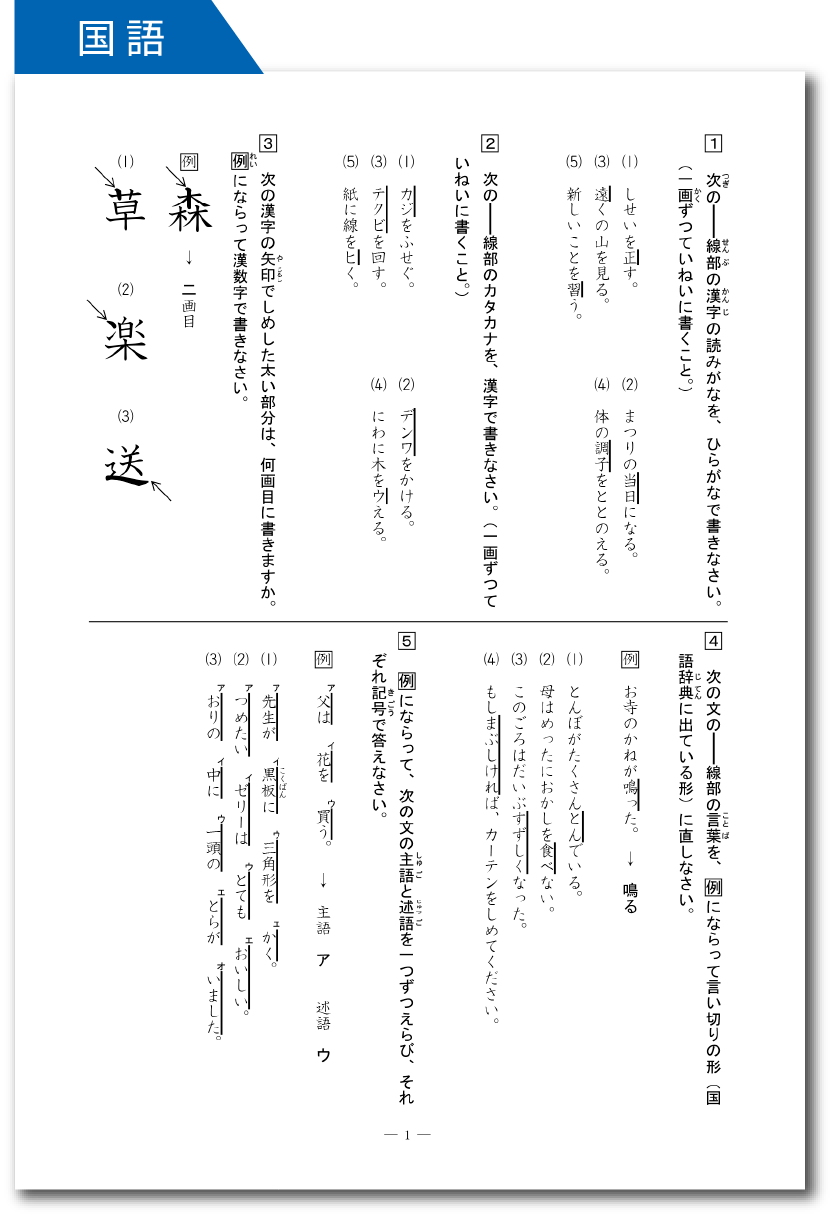 国語
1 次の――線部の漢字の読みがなを、ひらがなで書きなさい。
（一画ずつていねいに書くこと。）
(1) しせいを正す。
(2) まつりの当日になる。
(3) 遠くの山を見る。
(4) 体の調子をととのえる。
(5) 新しいことを習う。
2 次の――線部のカタカナを、漢字で書きなさい。（一画ずつて
いねいに書くこと。）
(1) カジをふせぐ。
(2) デンワをかける。
(3) テクビを回す。
(4) にわに木をウえる。
(5) 紙に線をヒく。
3 次の漢字の矢印でしめした太い部分は、何画目に書きますか。
例にならって漢数字で書きなさい。
例 森 → 二画目
(1) 草
(2) 楽
(3) 送
4 次の文の――線部の言葉を、例にならって言い切りの形（国
語辞典に出ている形）に直しなさい。
例 お寺のかねが鳴った。 → 鳴る
(1) とんぼがたくさんとんでいる。
(2) 母はめったにおかしを食べない。
(3) このごろはだいぶすずしくなった。
(4) もしまぶしければ、カーテンをしめてください。
5 例にならって、次の文の主語と述語を一つずつえらび、それ
ぞれ記号で答えなさい。
例 ア父は イ花を ウ買う。 → 主語 ア 述語 ウ
(1) ア先生が イ黒板に ウ三角形を エかく。
(2) アつめたい イゼリーは ウとても エおいしい。
(3) アおりの イ中に ウ一頭の エとらが オいました。
― 1 ―